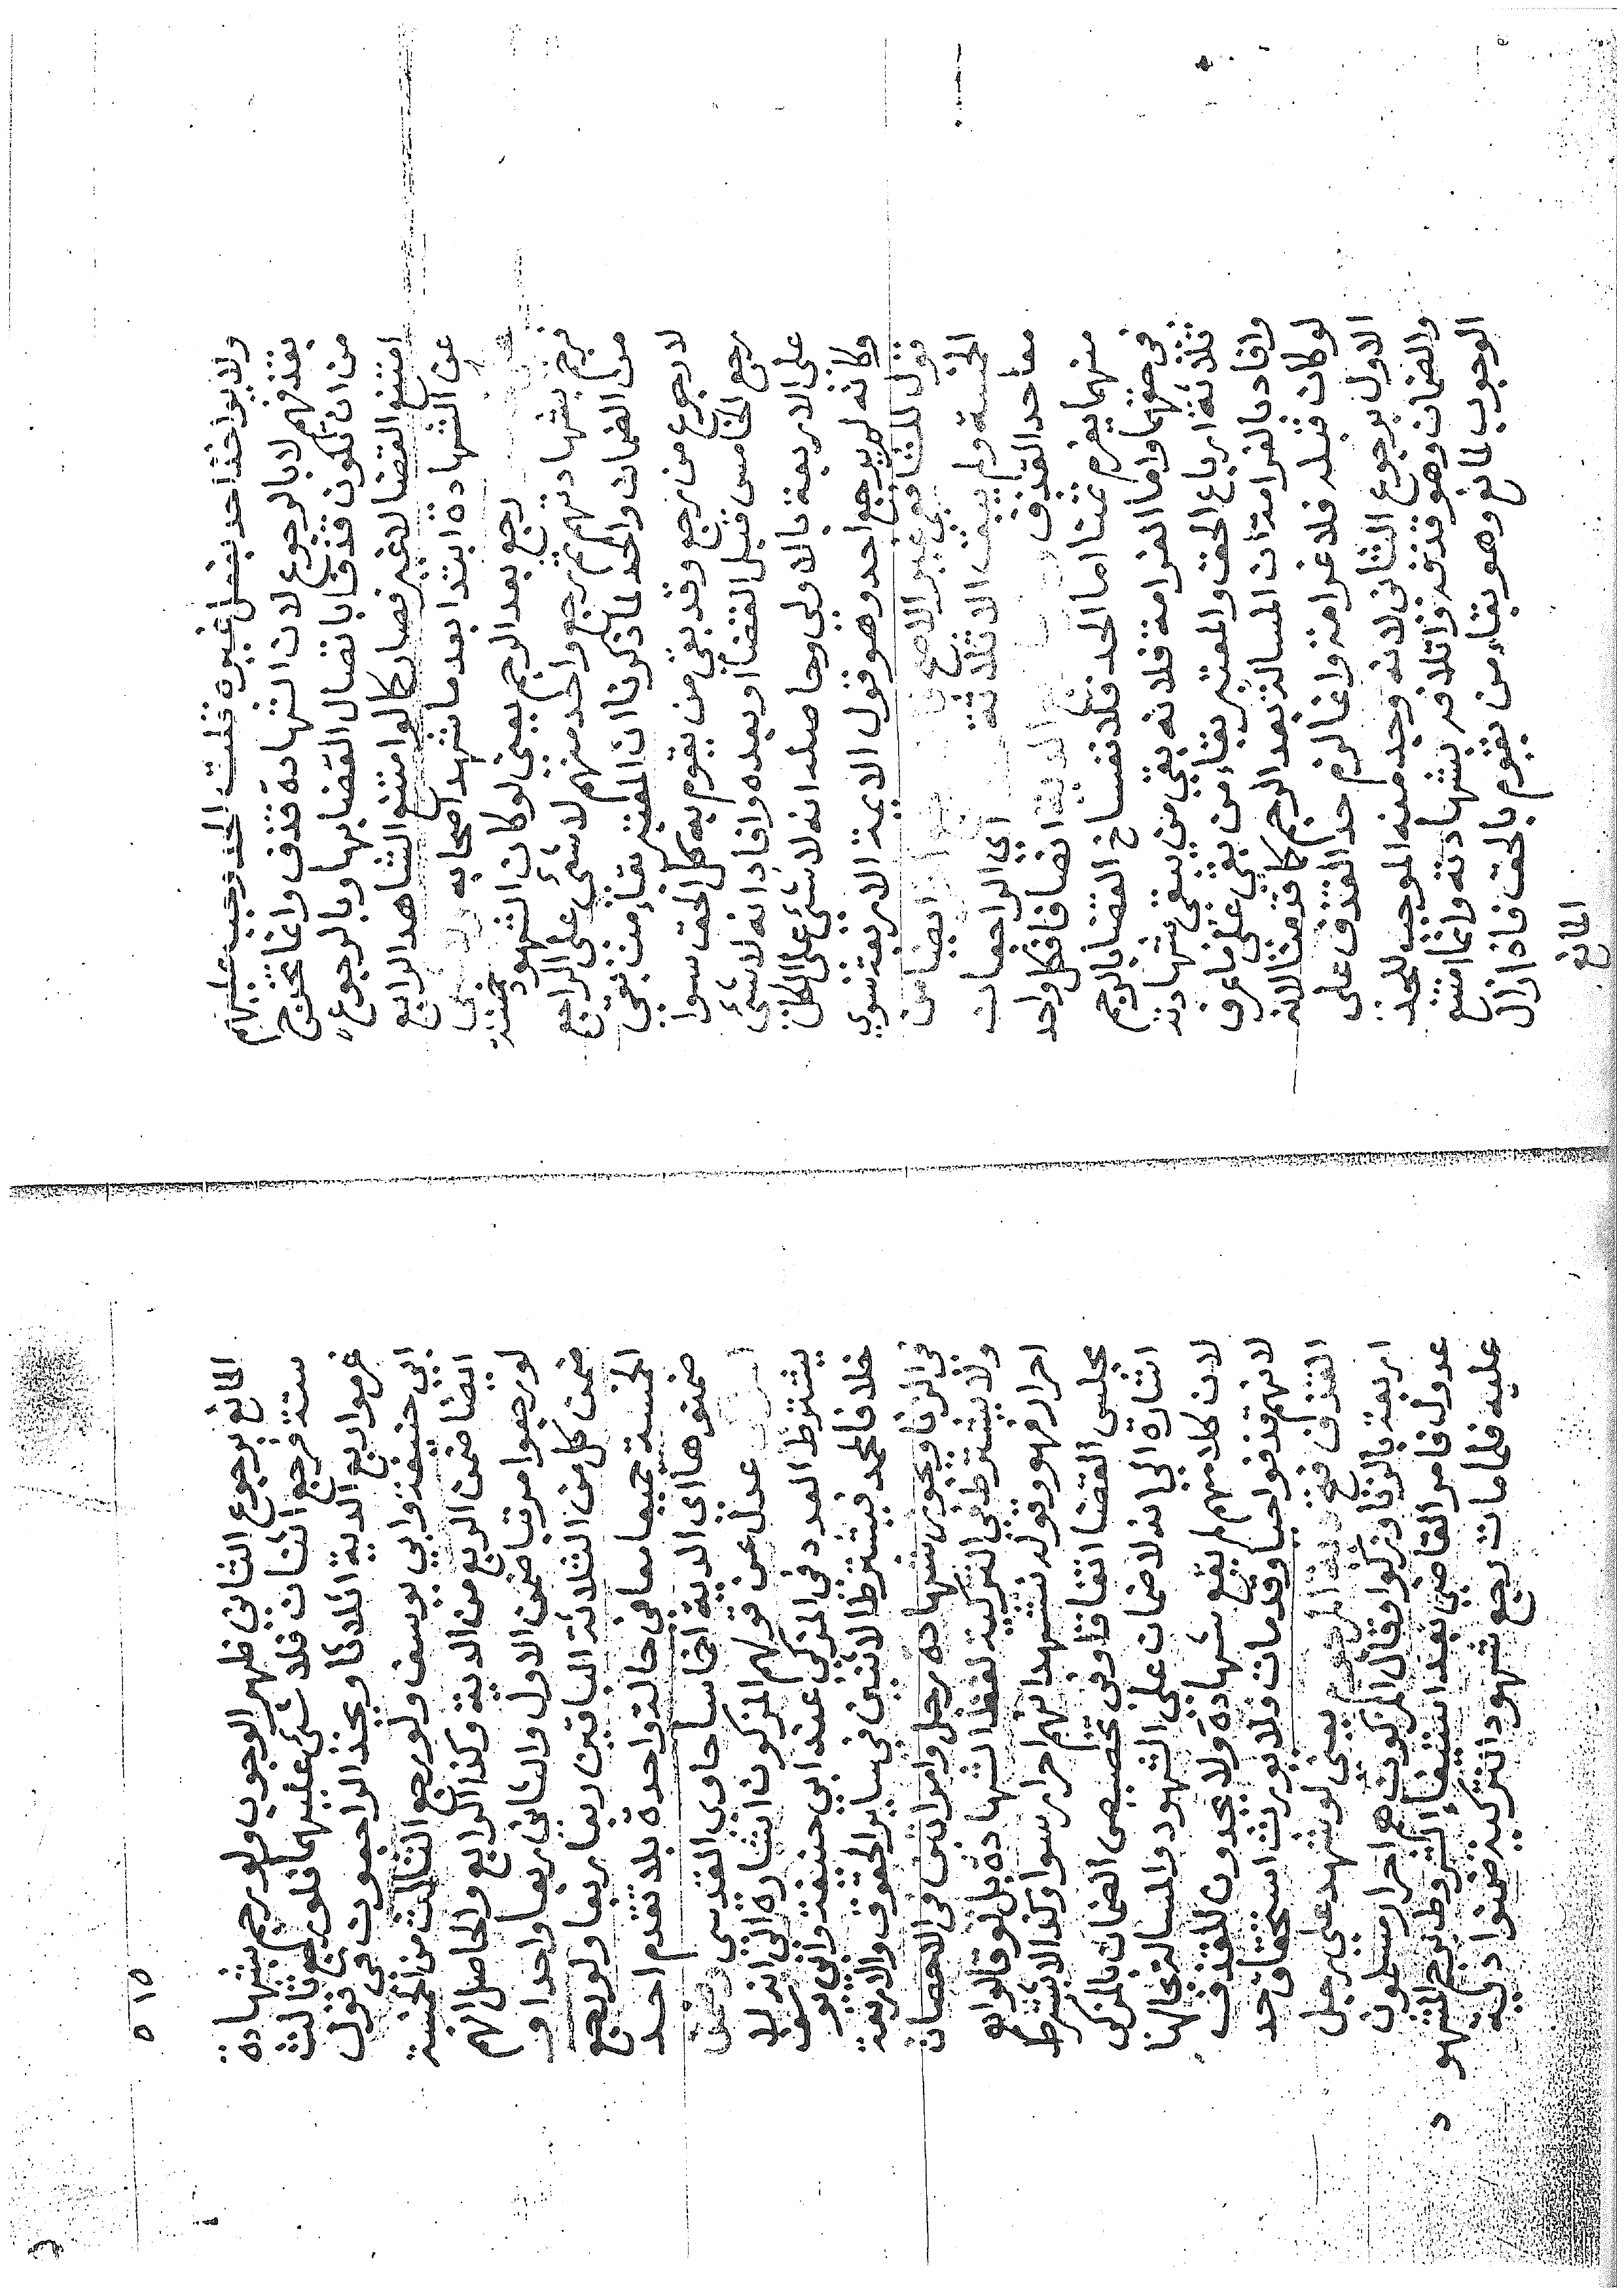 ولا يواخذ احد بفعل غيره قلت الحد وجب عليهم
بقذفهم لا بالرجوع لان الشهادة قذف وانما تخرج
من ان تكون قذفا باتصال القضا بها وبالرجوع
امتنع القضا لاغير فصار كالو امتنع الشاهد الرابع
عن الشهادة ابتدا بعد ما شهد اصحابه ولاشى
رجع بعد الرجم يعنى لو كان الشهود خمسة
فرجم بشهادتهم ثم رجع واحد منهم لاشى على الراجع
من الضمان والحد لما ذكرنا ان المعتبر بقاء من بقى
لا رجوع من رجع وقد بقى من يقوم به كل الحق سوا
رجع الخامس قبل القضاء او بعده وافاد انه لاشى
على الاربعة بالاولى وحاصله انه لاشى على الكل
وكانه لم يرجع احد وهو قول الايمة الاربعة سوى
قول للشافعى غير الاصح ايضا من
الخمسة ولم يبق الا ثلاثة اى الراجعان
معا حد القذف الدية انصافا فكل واحد
منهما يغرم ثمنا اما الحد فلانفساخ القضا بالرجم
فى حقهما واما الغرامة فلانه بقى من يبقى شهادته
ثلاثة ارباع الحق والمعتبر بقاء من بقى على ما عرف
وافاد بالغرامة ان المسالة بعد الرجم كا قدمنا لانه
لو كان قبله فلا غرامة وانما لزم حد القذف على
الاول برجوع الثانى لانه وجد منه الموجب للحد
والضمان وهو قذفه واتلافه بشهادته وانما امتنع
الوجوب لمانع وهو بقاء من يقوم بالحق فاذا زال
المانع
٥١٥
المانع برجوع الثانى ظهر الوجوب ولو رجم بشهادة
ستة فرجع اثنان فلا شى عليهما فلو رجع ثالث
غرموا ربع الدية اثلاثا ويحد الراجعون فى قول
ابى حنيفة وابى يوسف ولو رجع الثالث من الخمسة
ايضا ضمن الربع من الدية وكذا الرابع والحاصل انهم
لو رجعوا مرتبا ضمن الاول والثانى ربعا واحدا و
ضمن كل من الثلاثة الباقين ربعا ربعا ولو رجع
الخمسة جميعا معا فى حالة واحدة بلا تقدم احد
ضمنوها اى الدية اخماسا حاوى القدسى وضمن
عدل عن قولهم المزكون اشارة الى انه لا
يشترط العدد فى المزكى عند ابى حنيفة وابى يوسف
خلافا لمحمد فيشترط الاثنين فى ساير الحقوق والاربعة
فى الزنا ويجوز شهادة رجل وامراتين فى الاحصان
ولا يشترط فى التزكية لفظ الشهادة بل لو قالوا هو
احرار فهو وقوله نشهد انهم احرار سوا وكذا لا يشترط
مجلس القضا اتفاقا وفى تخصيص الضمان بالمزكى
اشارة الى انه لا ضمان على الشهود والمسالة بحالها
لان كلامهم لم يقع شهادة ولا يحدون للقذف
لانهم قذفوا حيا وقد مات ولا يورث استحقاق حد
القذف يعنى لو شهد على رجل
اربعة بالزنا وزكوا وقال المزكون هم احرار مسلمون
عدول فامر القاضى بعد استيفاء الشروط برجم المشهود
عليه فلما مات رجع شهود التزكية ضمنوا دية